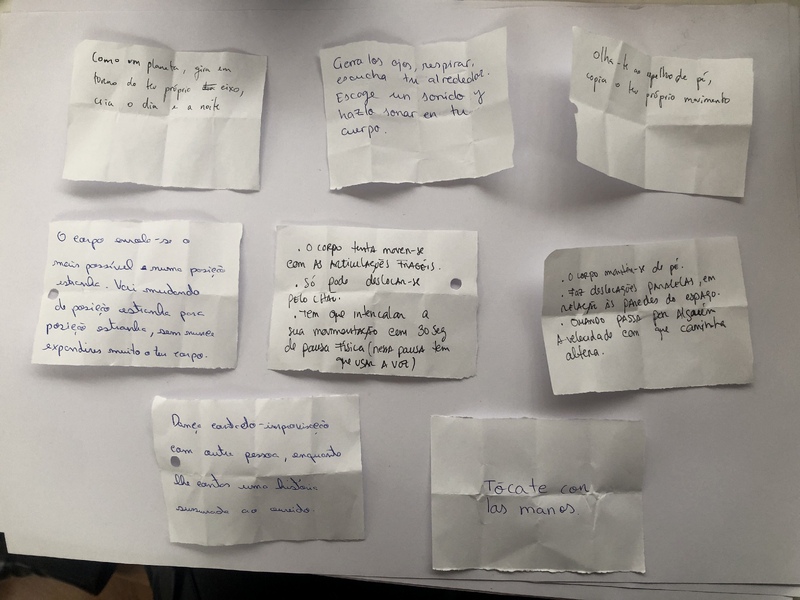 Como um planeta, gira em
torno do teu próprio eixo,
cria o dia e a noite
Cierra los ojos, respirar,
escucha tu alrededor.
Escoge un sonido y
hazlo sonar en tu
cuerpo.
Olha-te ao espelho de pé,
copia o teu próprio movimento
O corpo enrola-se o
mais possível e numa posição
estranha. Vai mudando
de posição estranha para
posição estranha, sem nunca
expandires muito o teu corpo.
• O CORPO tenta mover-se
com AS ARTICULAÇÕES FRÁGEIS.
• Só pode deslocar-se
pelo CHÃO.
• Tem que intercalar a
sua movimentação com 30 seg
de pausa física (nessa pausa tem
que usar A VOZ)
• O corpo mantém-se de pé.
• Faz deslocações paralelas, em
relação às paredes do espaço.
• Quando passa por alguém
A velocidade com que caminha
altera.
Dança contacto-improvisação
com outra pessoa, enquanto
lhe contas uma história
sussurrada ao ouvido.
Tócate con
las manos